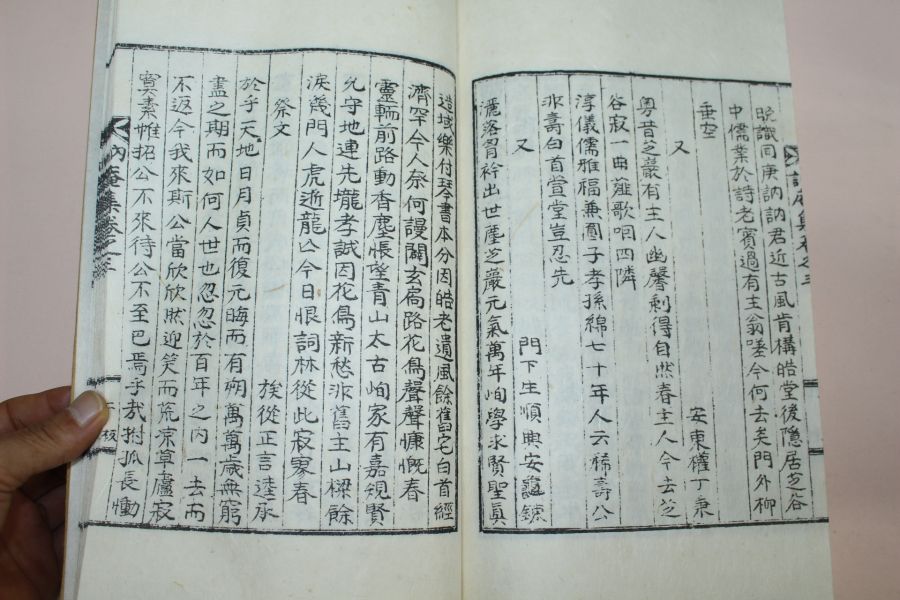 晩識同庚訥訥君近古風肯構皓堂後隱居芝谷
中儒業於詩老賓過有主翁嗟今何去矣門外柳
垂空
安東權丁秉
又
粤昔芝巖有主人幽馨剩得自然春主人今去芝
谷寂一曲薤歌咽四隣
淳儀儒雅福兼圓子孝孫綿七十年人云稀壽公
非壽白首萱堂豈忍先
門下生順興安鎬
又
灑落胷衿出世塵芝巖元氣萬年峋學求賢聖眞
遺域樂付琴書本分因皓老遺風餘舊宅白首經
濟罕今人奈何謾闢玄扃路花爲聲聲慷慨春
靈輀前路動香塵悵望青山太古峋家有嘉規賢
允守地連先壠孝誠因花爲新愁非舊主山樑餘
淚幾門人虎逝龍亾今日恨詞林從此寂寥春
祭文
族從正言逵承
於乎天地日月貞而復元晦而有朔萬萬歲無窮
盡之期而如何人世也忽忽於百年之內一去而
不返今我來斯公當欣欣然迎笑而荒凉草廬寂
寞素帷招公不來待公不至巴焉乎哉拊孤長慟
內庵集卷之三